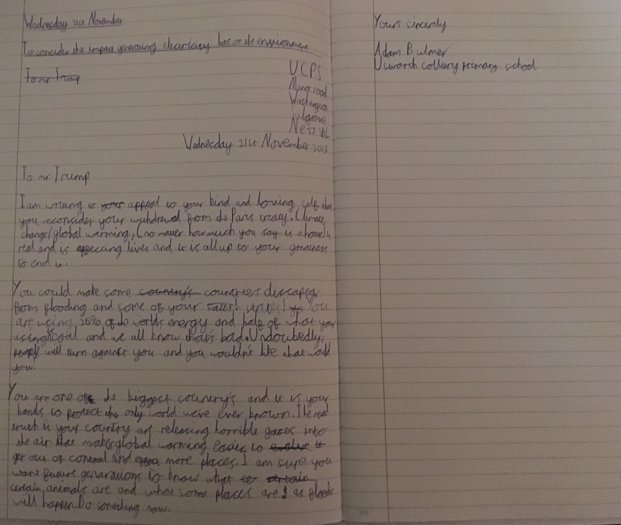 Wednesday 21st November
To consider the impact generating electricity has on the environment
to mr Trump
UCPS
Washington
Wednesday 21st November
To mr Trump
I am writing to your appeal to your kind and loving self that
you reconsider your withdrawal from the Paris treaty. Climate
change/global warming, (no mater how much you say is a hoax) is
real and is effecting lives and it is all up to your greatness
to end it.
You could make some country's countries
from flooding and some of your states! You
are using of the worlds energy and half of what your
using is and we all know that's bad. Undoubtedly,
people will turn against you and you wouldn't like that would
you.
You are one of the biggest country's and it is your
hands to protect the only world we've ever known. The real
truth is your country are releasing horrible gases into
the air that makes global warming easier to evolve
get out of control and more places. I am sure you
want future generations to know what certain
certain animals are and what some places are as floods
will happen. Do something now.
Yours sincerely
Adam Bulmer
Usworth colliery primary school